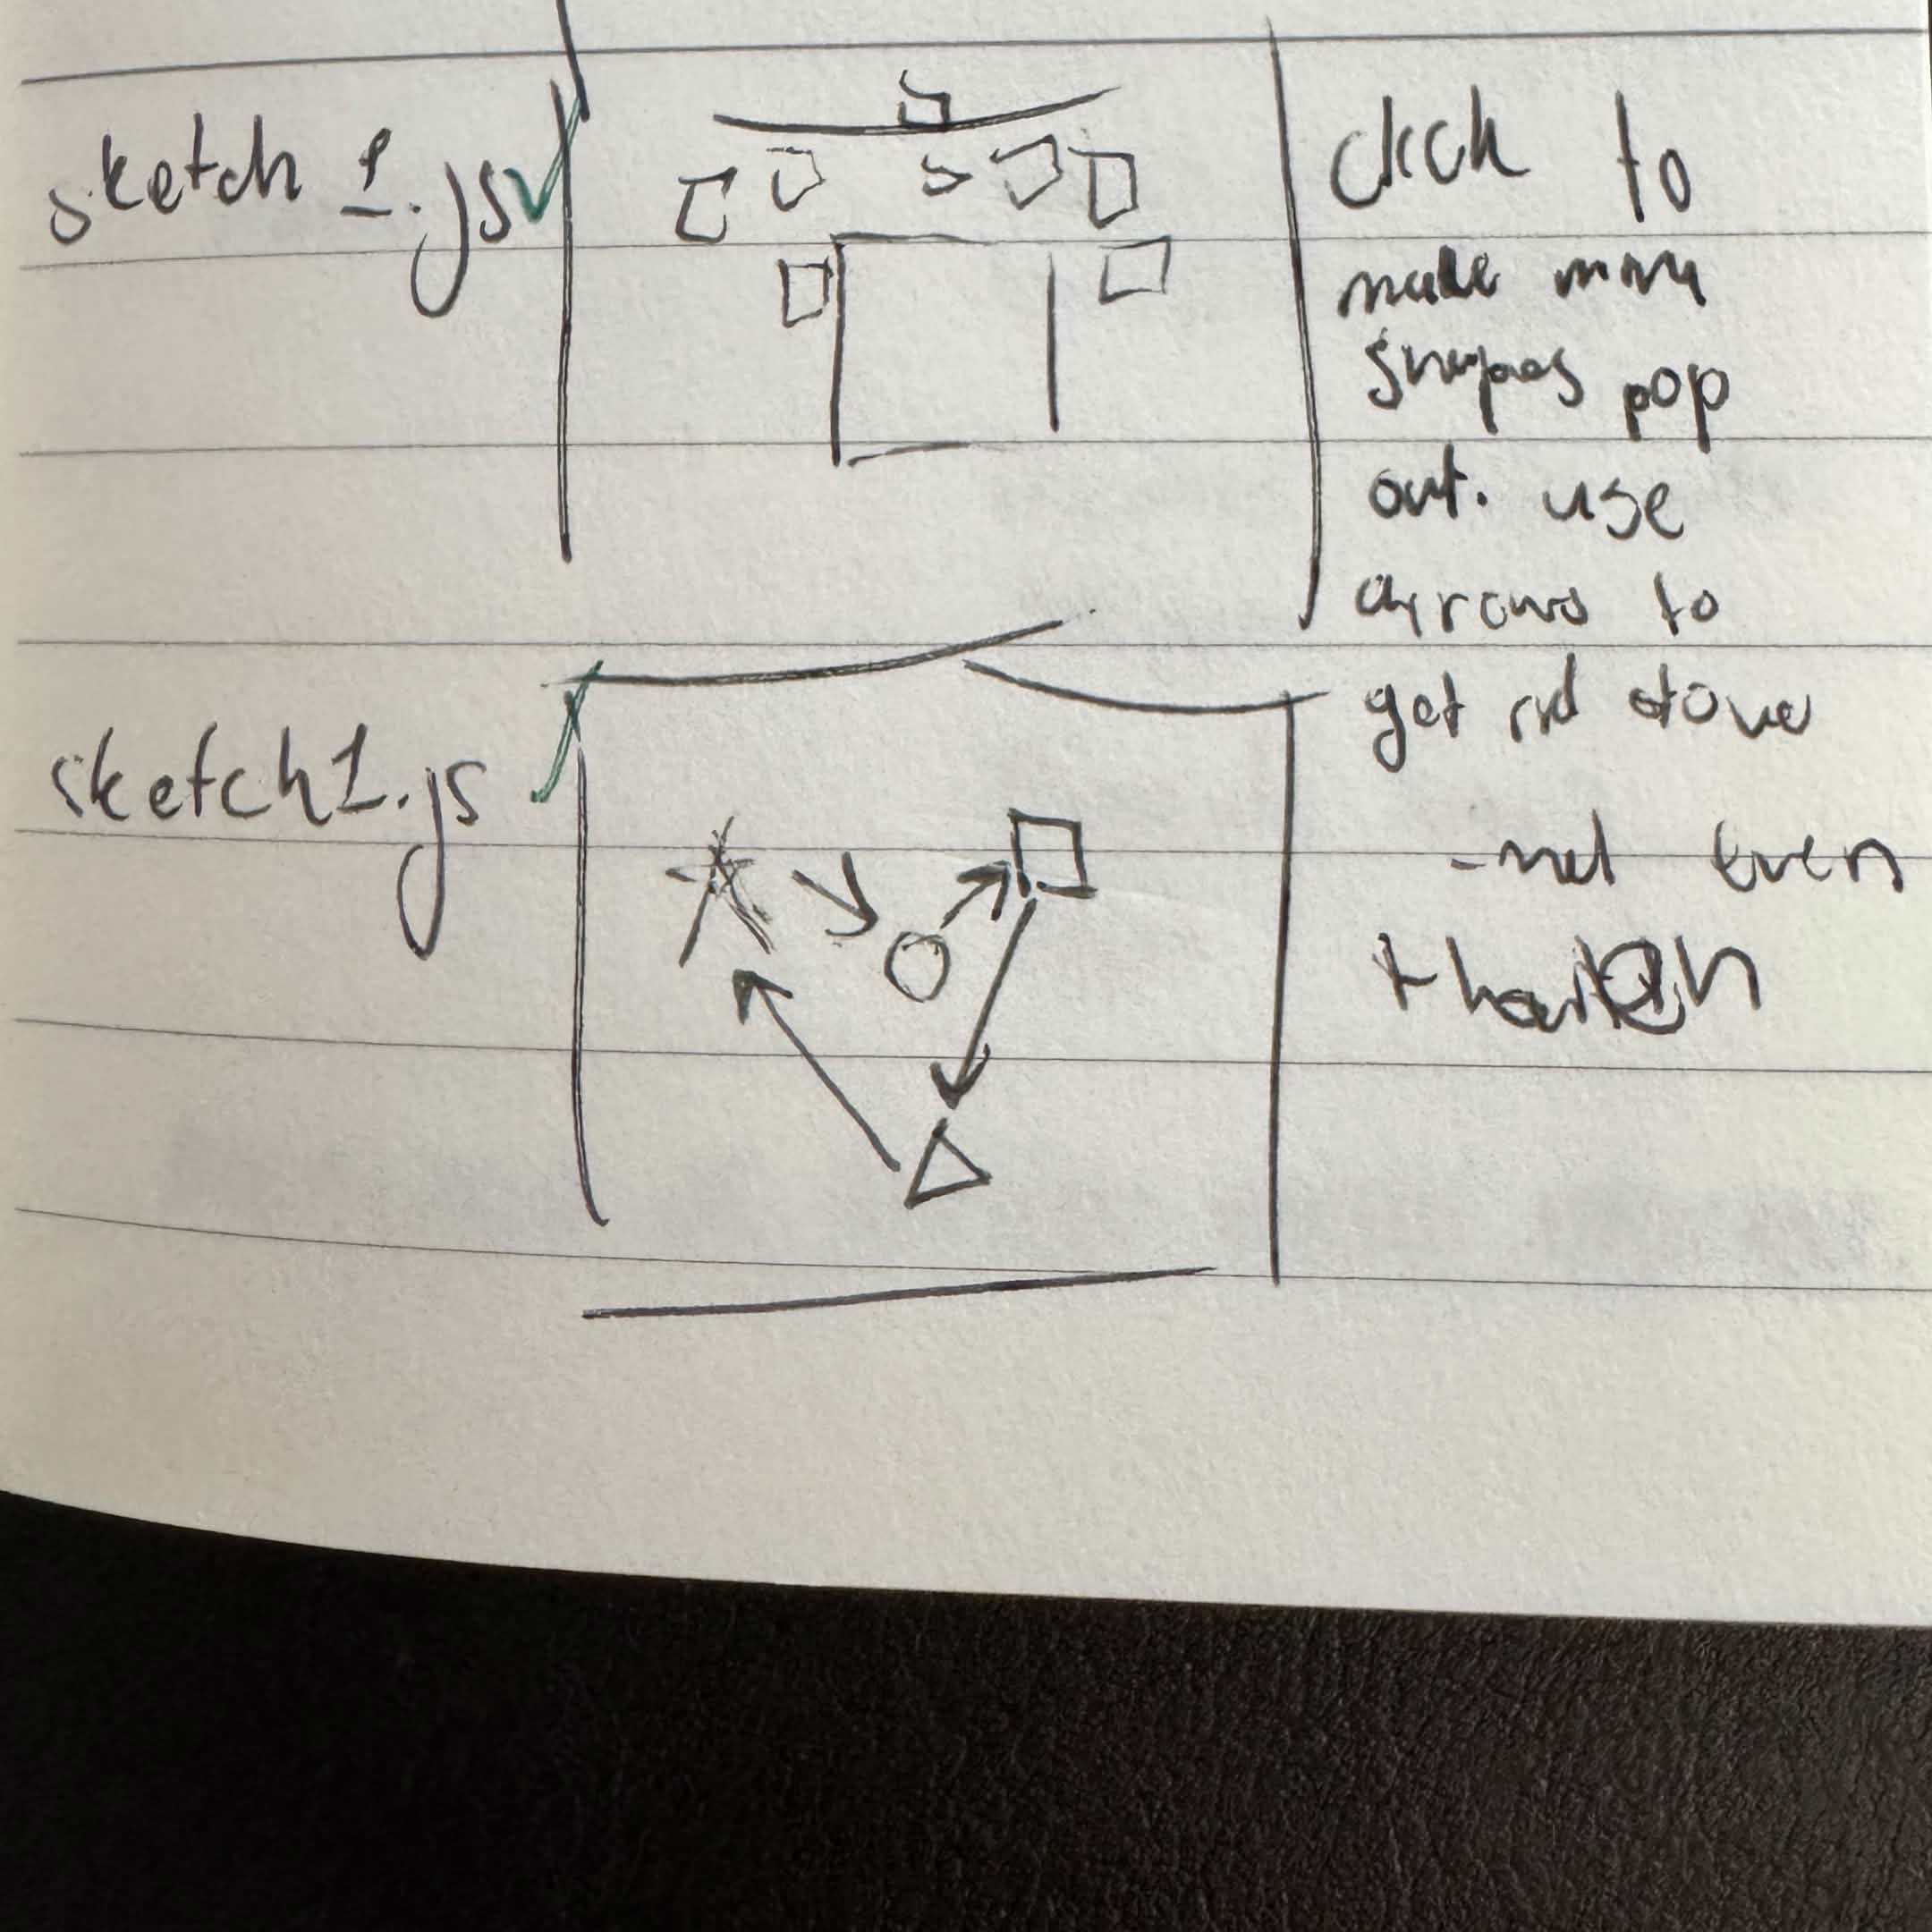 sketch 1.js
click to
make more
shapes pop
out. use
arrows to
get rid
sketch1.js
- not even